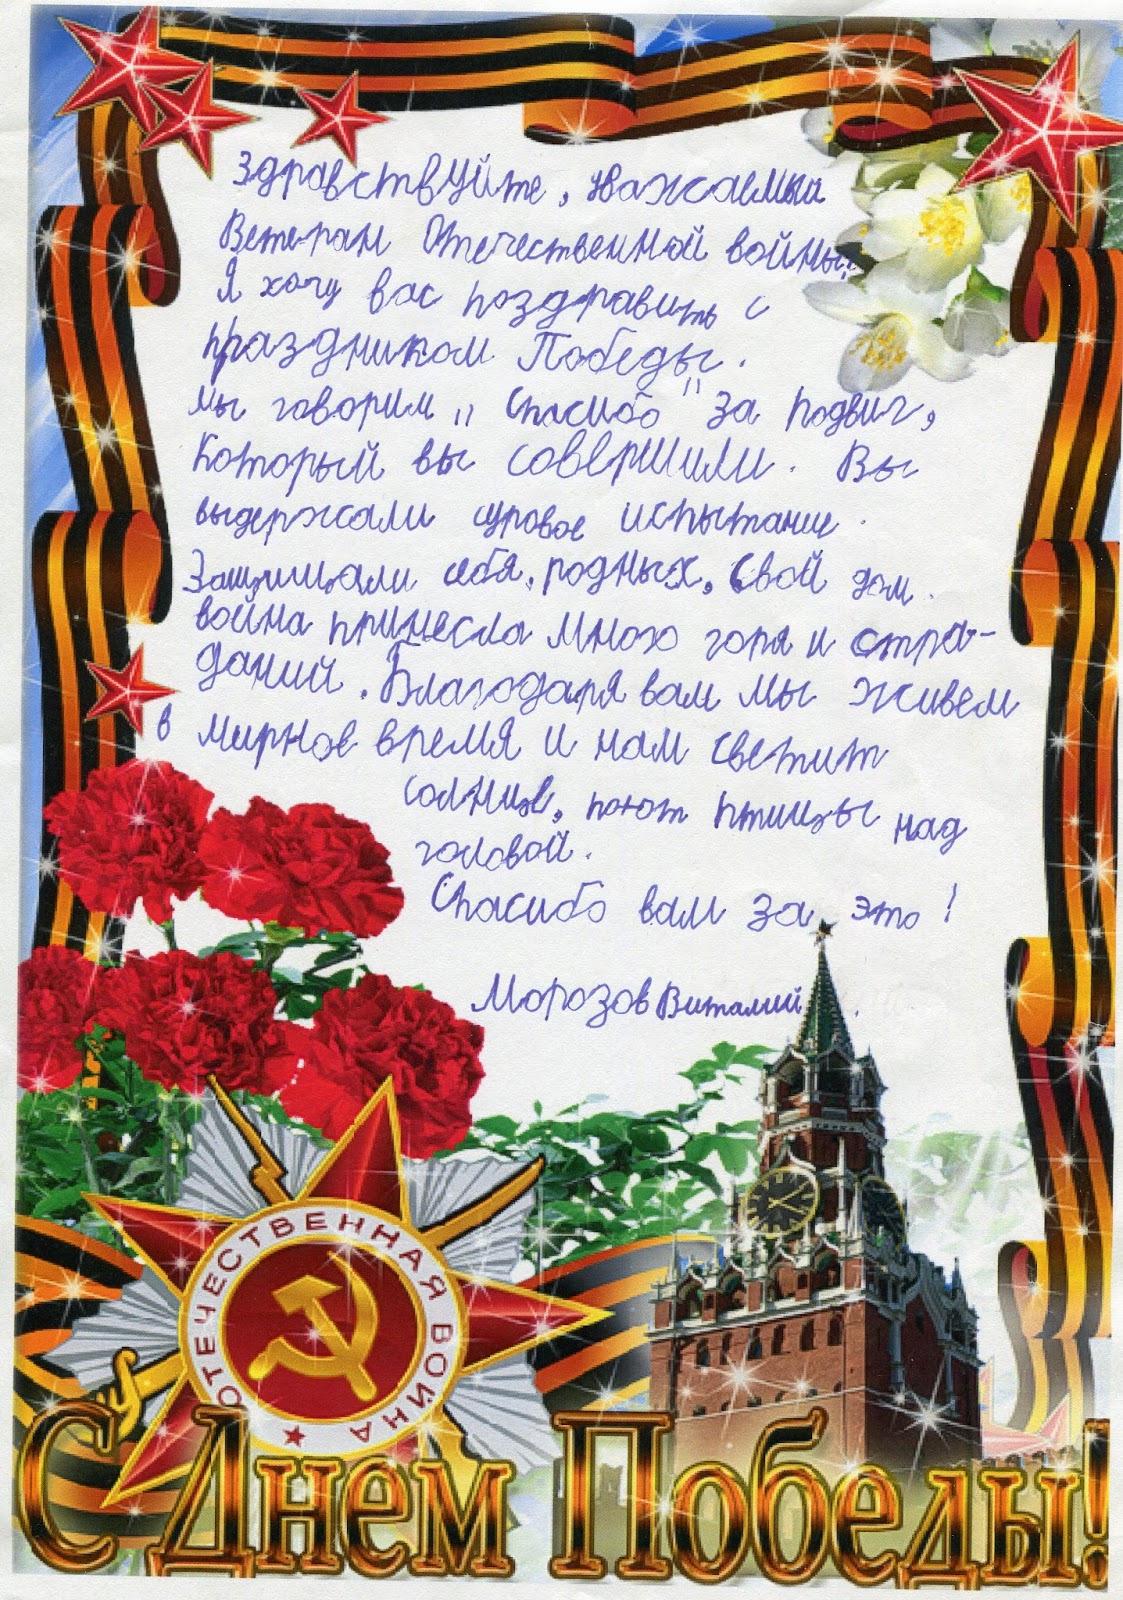 Здравствуйте, уважаемый
Ветеран Отечественной войны!
Я хочу вас поздравить с
праздником Победы.
мы говорим "Спасибо" за подвиг,
Который вы совершили. Вы
выдержали суровое испытание.
Защищали себя, родных, Свой дом.
война принесла много горя и стра-
даний. Благодаря вам мы живем
в мирное время и нам светит
солнце, поют птицы над
головой.
Спасибо вам за это!
Морозов Виталий.
ОТЕЧЕСТВЕННАЯ ВОЙНА
С Днем Победы!